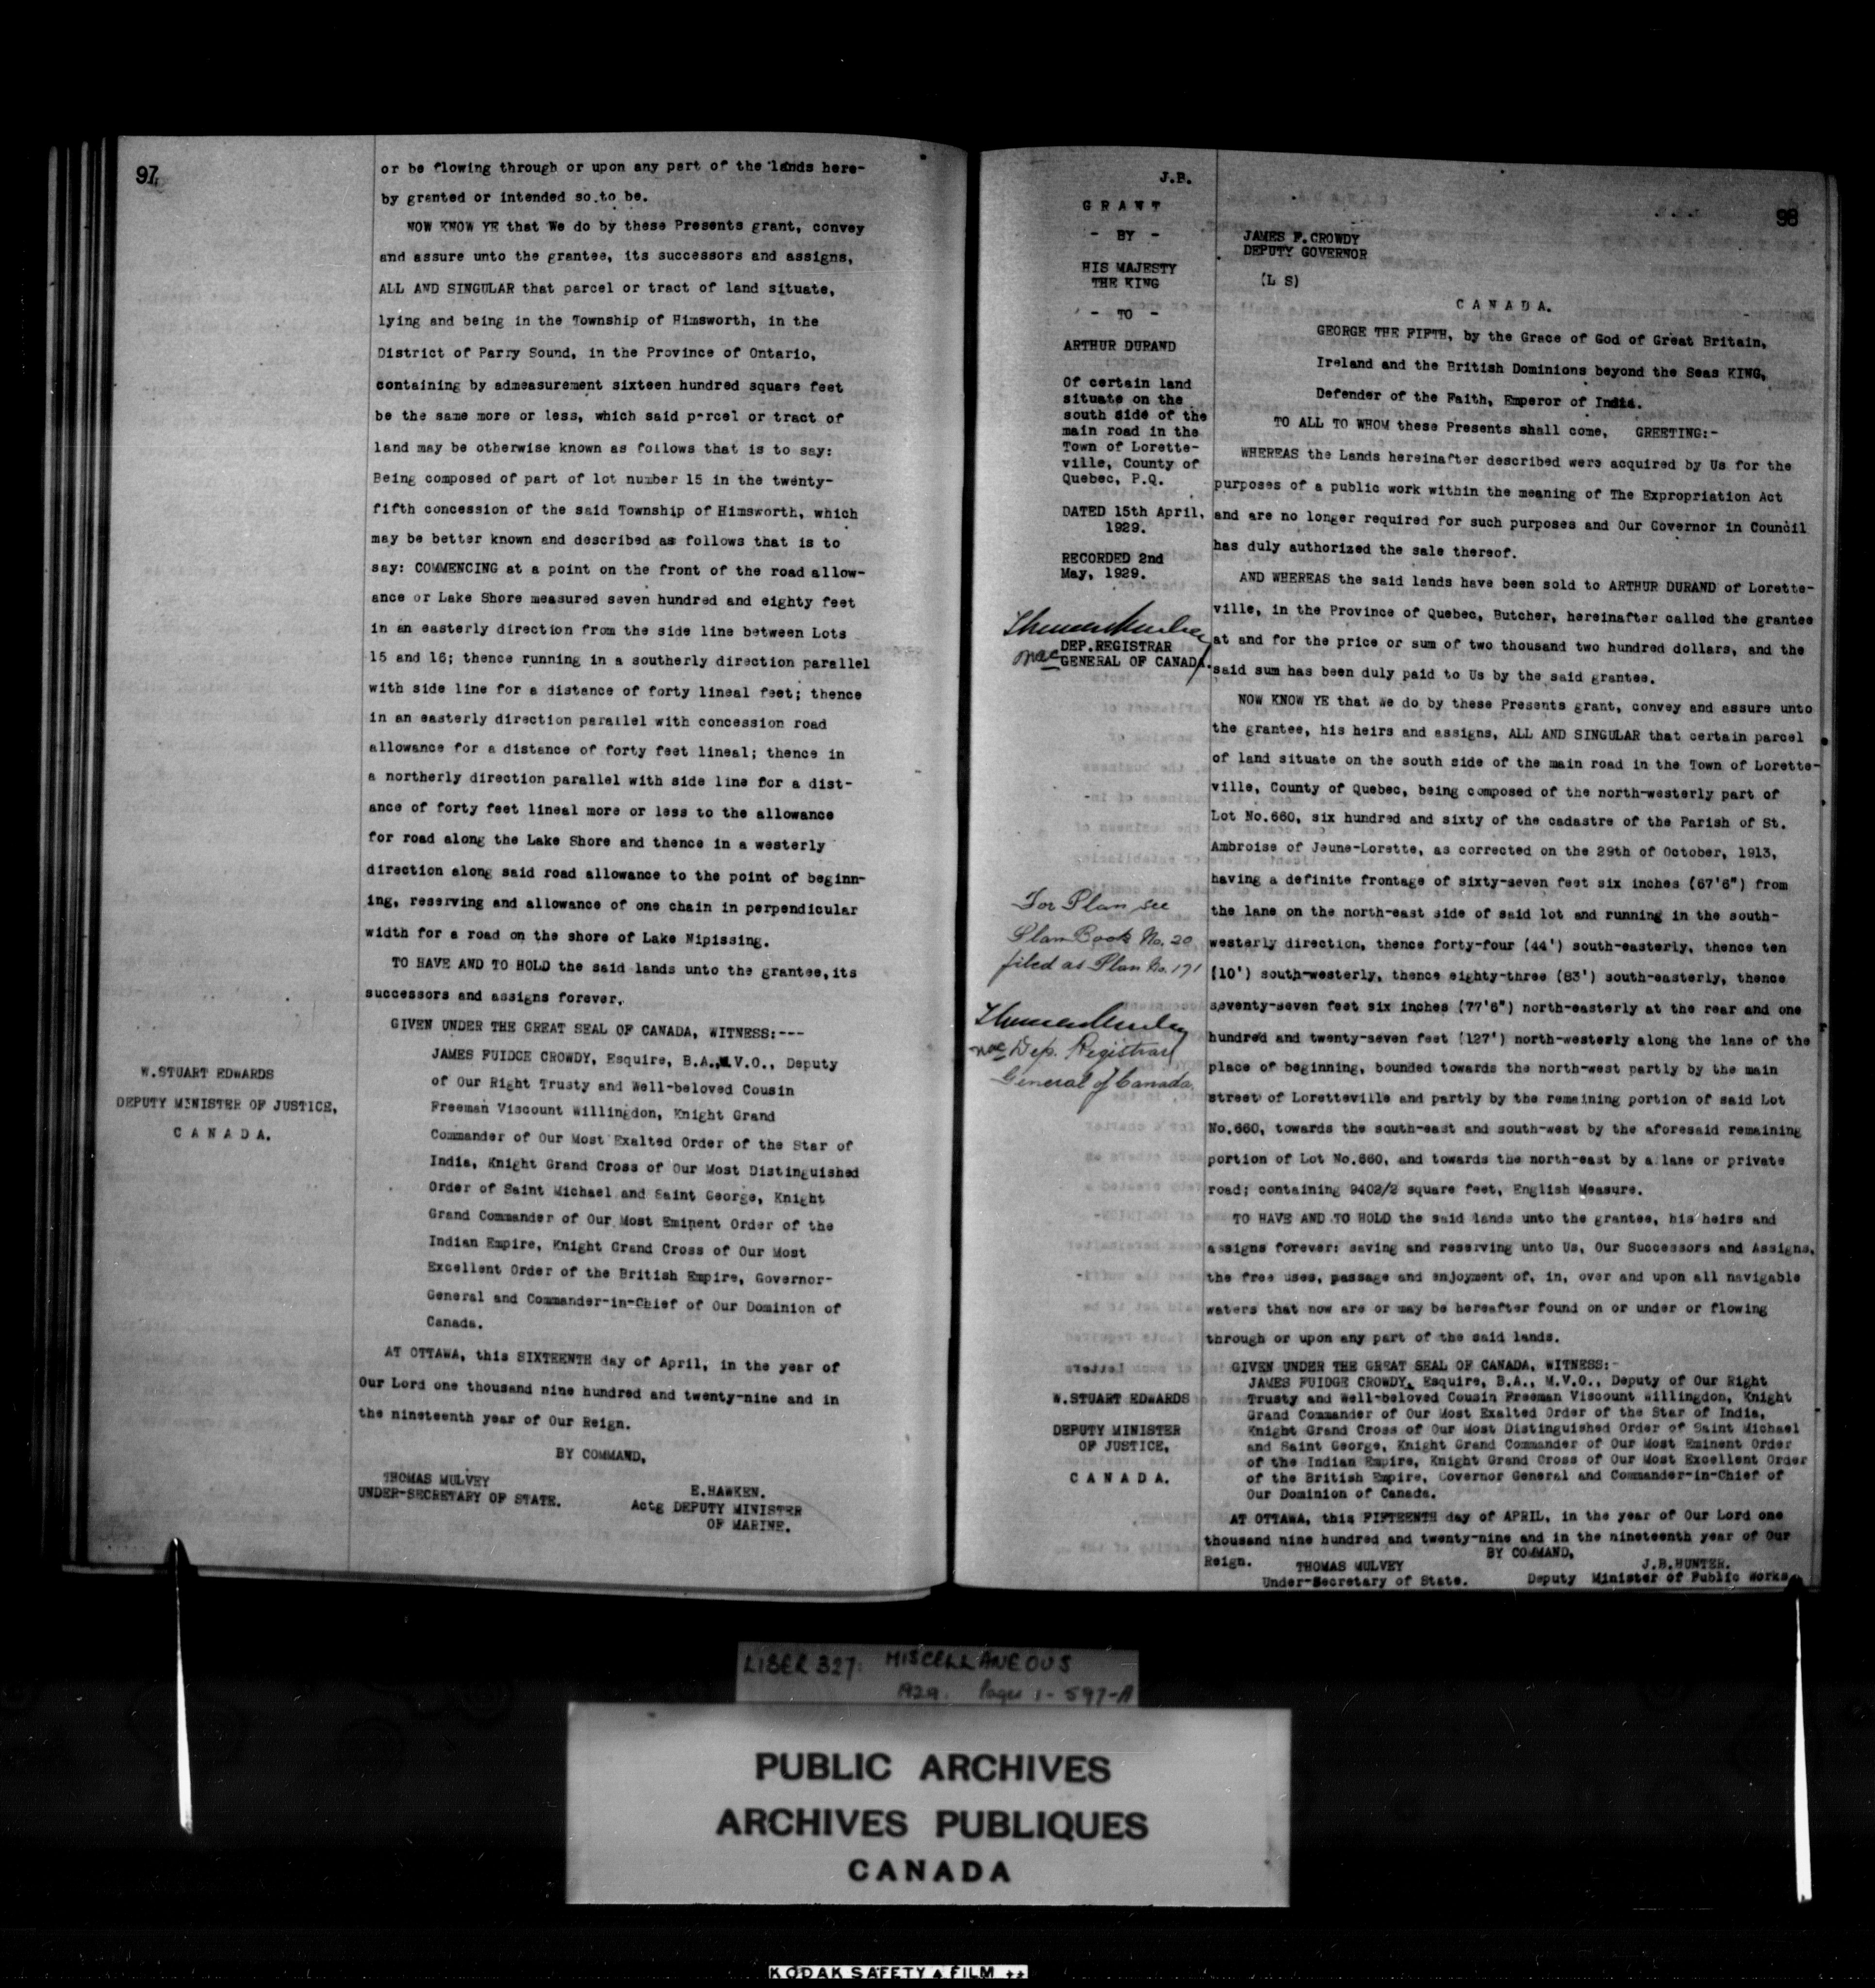 97
or be flowing through or upon any part of the lands here-
by granted or intended so to be.
NOW KNOW YE that We do by these Presents grant, convey
and assure unto the grantee, its successors and assigns,
ALL AND SINGULAR that parcel or tract of land situate,
lying and being in the Township of Himsworth, in the
District of Parry Sound, in the Province of Ontario,
containing by admeasurement sixteen hundred square feet
be the same more or less, which said parcel or tract of
land may be otherwise known as follows that is to say:
Being composed of part of lot number 15 in the twenty-
fifth concession of the said Township of Himsworth, which
may be better known and described as follows that is to
say: COMMENCING at a point on the front of the road allow-
ance or Lake Shore measured seven hundred and eighty feet
in an easterly direction from the side line between Lots
15 and 16; thence running in a southerly direction parallel
with side line for a distance of forty lineal feet; thence
in an easterly direction parallel with concession road
allowance for a distance of forty feet lineal; thence in
a northerly direction parallel with side line for a dist-
ance of forty feet lineal more or less to the allowance
for road along the Lake Shore and thence in a westerly
direction along said road allowance to the point of beginn-
ing, reserving and allowance of one chain in perpendicular
width for a road on the shore of Lake Nipissing.
TO HAVE AND TO HOLD the said lands unto the grantee, its
successors and assigns forever.
GIVEN UNDER THE GREAT SEAL OF CANADA, WITNESS:---
JAMES FUIDGE CROWDY, Esquire, B.A., M.V.O., Deputy
of Our Right Trusty and Well-beloved Cousin
Freeman Viscount Willingdon, Knight Grand
Commander of Our Most Exalted Order of the Star of
India, Knight Grand Cross of Our Most Distinguished
Order of Saint Michael and Saint George, Knight
Grand Commander of Our Most Eminent Order of the
Indian Empire, Knight Grand Cross of Our Most
Excellent Order of the British Empire, Governor-
General and Commander-in-Chief of Our Dominion of
Canada.
W.STUART EDWARDS
DEPUTY MINISTER OF JUSTICE,
C A N A D A.
AT OTTAWA, this SIXTEENTH day of April, in the year of
Our Lord one thousand nine hundred and twenty-nine and in
the nineteenth year of Our Reign.
BY COMMAND,
THOMAS MULVEY
UNDER-SECRETARY OF STATE.
E.HAWKEN.
Actg DEPUTY MINISTER
OF MARINE.
J.B.
G R A N T
- BY -
HIS MAJESTY
THE KING
- TO -
ARTHUR DURAND
Of certain land
situate on the
south side of the
main road in the
Town of Lorette-
ville, County of
Quebec, P.Q.
DATED 15th April,
1929.
RECORDED 2nd
May, 1929.
DEP.REGISTRAR
GENERAL OF CANADA.
For Plan see
Plan Book No. 20
filed as Plan No. 171
Dep. Registrar
General of Canada.
W.STUART EDWARDS
DEPUTY MINISTER
OF JUSTICE,
C A N A D A.
98
JAMES F.CROWDY
DEPUTY GOVERNOR
(L S)
C A N A D A.
GEORGE THE FIFTH, by the Grace of God of Great Britain,
Ireland and the British Dominions beyond the Seas KING,
Defender of the Faith, Emperor of India.
TO ALL TO WHOM these Presents shall come, GREETING:-
WHEREAS the Lands hereinafter described were acquired by Us for the
purposes of a public work within the meaning of The Expropriation Act
and are no longer required for such purposes and Our Governor in Council
has duly authorized the sale thereof.
AND WHEREAS the said lands have been sold to ARTHUR DURAND of Lorette-
ville, in the Province of Quebec, Butcher, hereinafter called the grantee
at and for the price or sum of two thousand two hundred dollars, and the
said sum has been duly paid to Us by the said grantee.
NOW KNOW YE that We do by these Presents grant, convey and assure unto
the grantee, his heirs and assigns, ALL AND SINGULAR that certain parcel
of land situate on the south side of the main road in the Town of Lorette-
ville, County of Quebec, being composed of the north-westerly part of
Lot No.660, six hundred and sixty of the cadastre of the Parish of St.
Ambroise of Jeune-Lorette, as corrected on the 29th of October, 1913,
having a definite frontage of sixty-seven feet six inches (67'6") from
the lane on the north-east side of said lot and running in the south-
westerly direction, thence forty-four (44') south-easterly, thence ten
(10') south-westerly, thence eighty-three (83') south-easterly, thence
seventy-seven feet six inches (77'6") north-easterly at the rear and one
hundred and twenty-seven feet (127') north-westerly along the lane of the
place of beginning, bounded towards the north-west partly by the main
street of Loretteville and partly by the remaining portion of said Lot
No.660, towards the south-east and south-west by the aforesaid remaining
portion of Lot No.660, and towards the north-east by a lane or private
road; containing 9402/2 square feet, English Measure.
TO HAVE AND TO HOLD the said lands unto the grantee, his heirs and
assigns forever: saving and reserving unto Us, Our Successors and Assigns,
the free uses, passage and enjoyment of, in, over and upon all navigable
waters that now are or may be hereafter found on or under or flowing
through or upon any part of the said lands.
GIVEN UNDER THE GREAT SEAL OF CANADA, WITNESS:-
JAMES FUIDGE CROWDY, Esquire, B.A., M.V.O., Deputy of Our Right
Trusty and Well-beloved Cousin Freeman Viscount Willingdon, Knight
Grand Commander of Our Most Exalted Order of the Star of India,
Knight Grand Cross of Our Most Distinguished Order of Saint Michael
and Saint George, Knight Grand Commander of Our Most Eminent Order
of the Indian Empire, Knight Grand Cross of Our Most Excellent Order
of the British Empire, Governor General and Commander-in-Chief of
Our Dominion of Canada.
AT OTTAWA, this FIFTEENTH day of APRIL, in the year of Our Lord one
thousand nine hundred and twenty-nine and in the nineteenth year of Our
Reign.
BY COMMAND,
THOMAS MULVEY
Under-Secretary of State.
J.B.HUNTER.
Deputy Minister of Public Works
LIBER 327: MISCELLANEOUS
1929. Pages 1-597-A
PUBLIC ARCHIVES
ARCHIVES PUBLIQUES
CANADA
KODAK SAFETY FILM